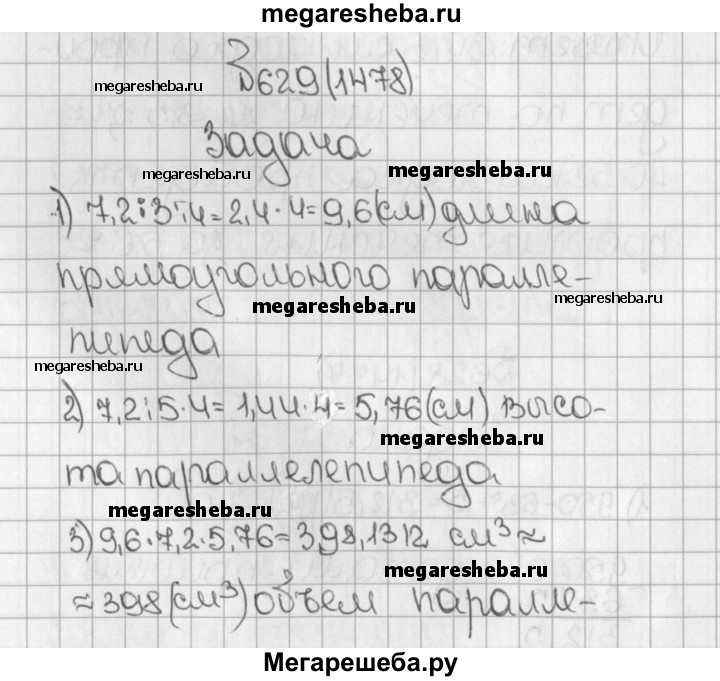 megaresheba.ru
№629(1478)
megaresheba.ru
Задача
megaresheba.ru
megaresheba.ru
1) 7,2:3:4=2,4·4=9,6(см) длина
прямоугольного паралле-
megaresheba.ru
megaresheba.ru
пипеда
megaresheba.ru
2) 7,2:5·4=1,44·4=5,76(см) высо-
megaresheba.ru
та параллелепипеда
megaresheba.ru
3) 9,6·7,2·5,76=398,1312 см³≈
megaresheba.ru
≈398(см³) объем паралле-
Мегарешеба.ру